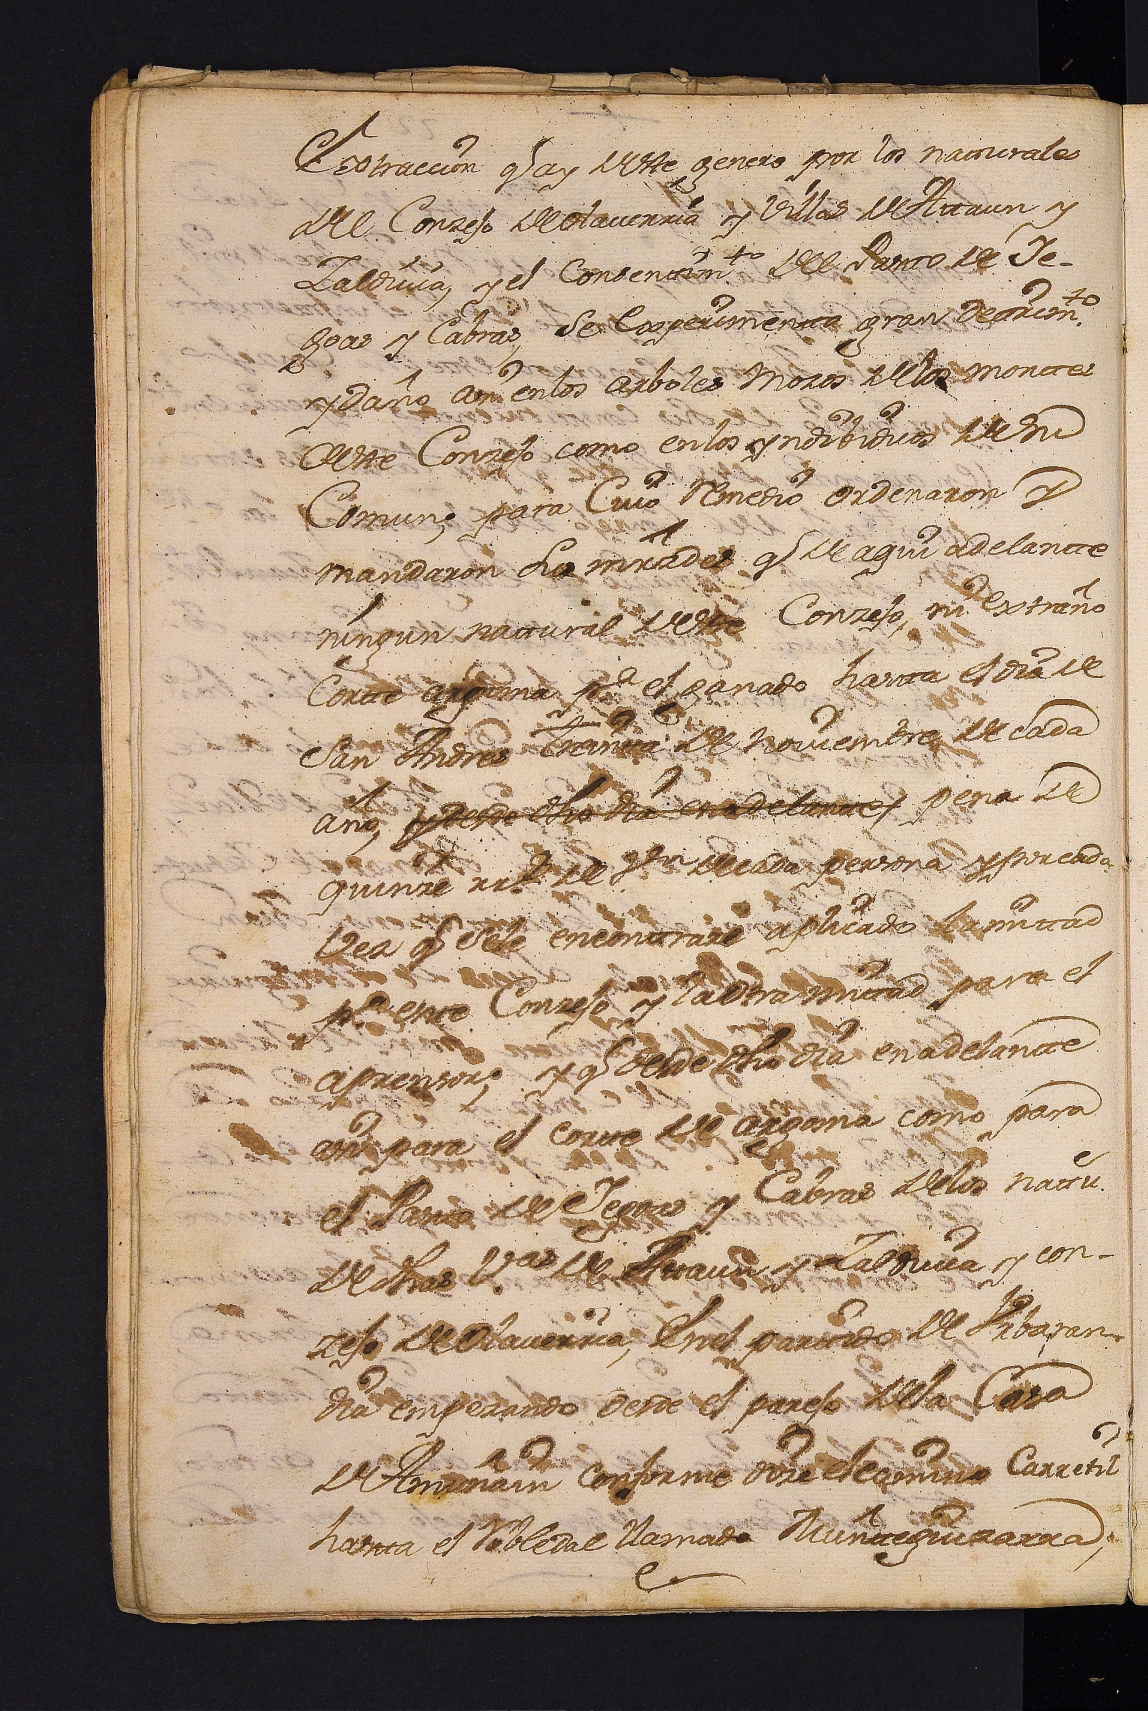 Extraccion q̃ ay deste genero por los naturales
del Conzejo de Olaverria y Villas de Ataun y
Zaldivia, y el Consentim.to del Pasto de Ye-
goas y Cabras, se Experimenta gran detrim.to
y daño asi en los arboles mozos de los montes
deste Conzejo como en los yndibiduos de su
Comun; para Cuio Remedio ordenaron y
mandaron sus mrzedes q̃ de aqui adelante
ningun natural deste Conzejo, ni extraño
Corte argoma p.a el ganado hasta el dia de
San Andres Treinta de Noviembre de cada
año, y desde dho dia en adelante, pena de
quinze rr.s de v.on de cada persona y por cada
vez q̃ se le encontrare aplicado la mitad
p.a este Conzejo y la otra mitad para el
aprensor; y q̃ desde dho dia en adelante
asi para el corte de argoma como para
el Pasto de Yegoas y Cabras de los natu.s
de dhas V.as de Ataun y Zaldivia y con-
zejo de Olaverria, en el partido de
dia empezando desde el parejo de la Casa
de Amunain conforme dize el camino Carretil
hasta el Robledal llamado